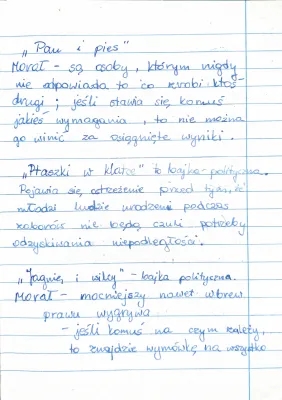 „Pan i pies"
Morał – są osoby, którym nigdy
nie odpowiada to co zrobi ktoś
drugi ; jeśli stawia się komuś
jakieś wymagania, to nie można
go winić za osiągnięte wyniki.
„Ptaszki w klatce" to bajka polityczna.
Pojawia się ostrzeżenie przed tym, że
młodzi ludzie urodzeni podczas
zaborów nie będą czuli potrzeby
odzyskiwania niepodległości.
„Jagnię i wilcy" – bajka polityczna.
Morał – mocniejszy nawet wbrew
prawu wygrywa
– jeśli komuś na czym zależy,
to znajdzie wymówkę na wszystko